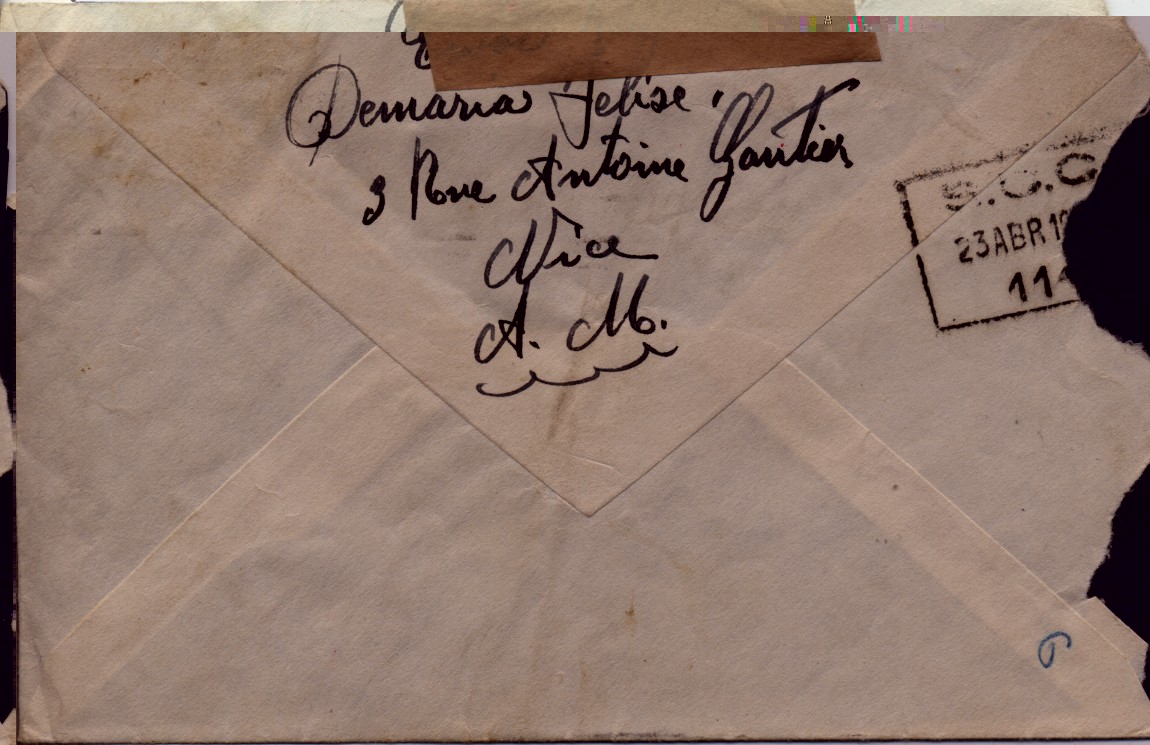 Demaria Felise.
3 Rue Antoine Gautier
Nice
A. M.
S.C.C
23 ABR 19
11
6